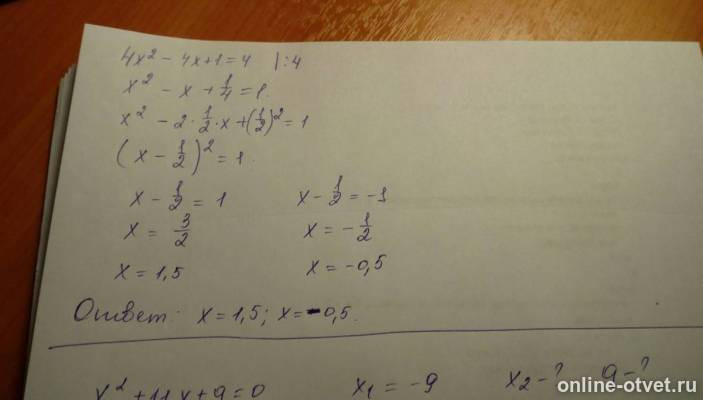 4x² - 4x + 1 = 4 |:4
x² - x + 1/4 = 1.
x² - 2 · 1/2 · x + (1/2)² = 1
(x - 1/2)² = 1.
x - 1/2 = 1 x - 1/2 = -1
x = 3/2 x = -1/2
x = 1,5 x = -0,5
Ответ: x = 1,5; x = -0,5.
x² + 11x + q = 0 x₁ = -9 x₂ - ? q - ?
online-otvet.ru